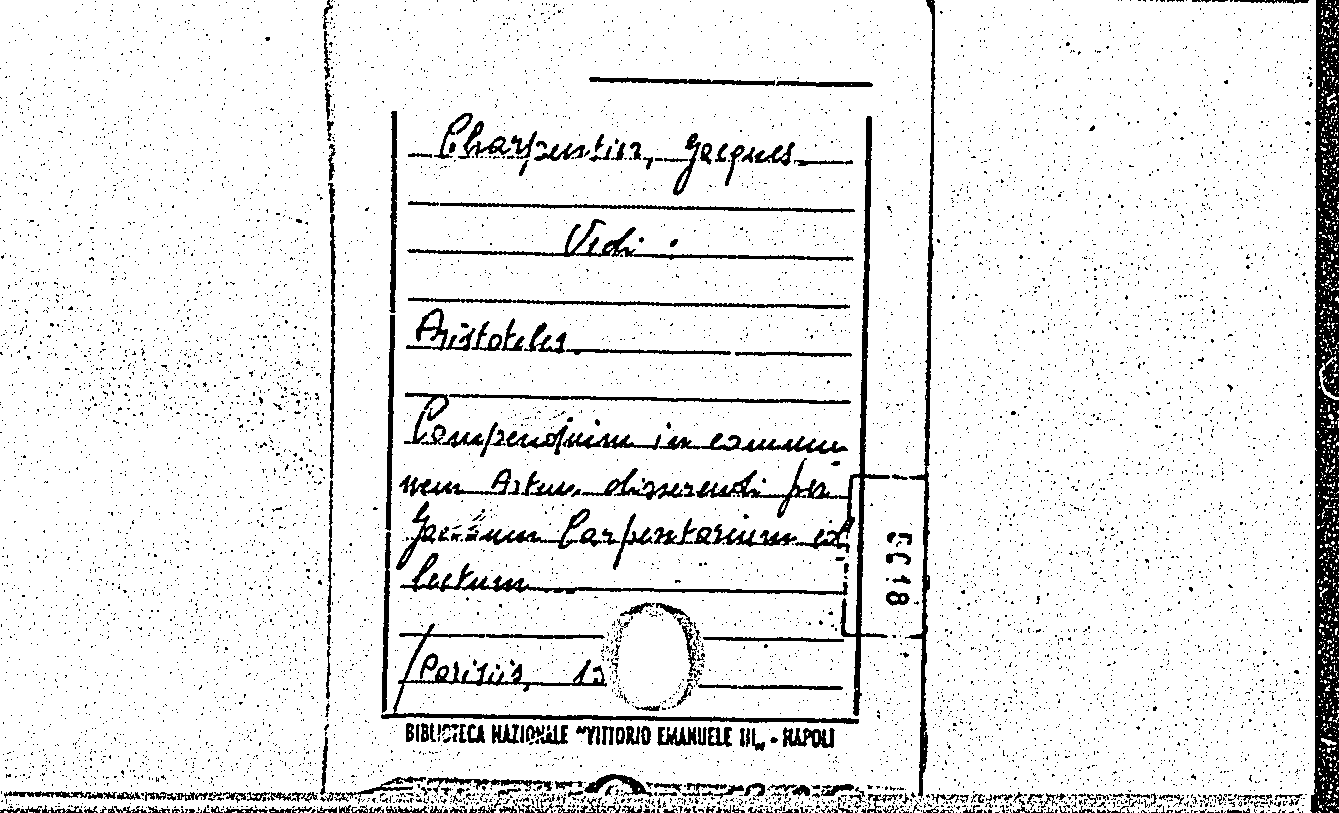 Charpentier, Jacques
Vedi :
Aristoteles
Compendium in commu
nem Artem disserendi per
Jacobum Carpentarium col
lectum
/Parisiis, 15
BIBLIOTECA NAZIONALE "VITTORIO EMANUELE III„ - NAPOLI